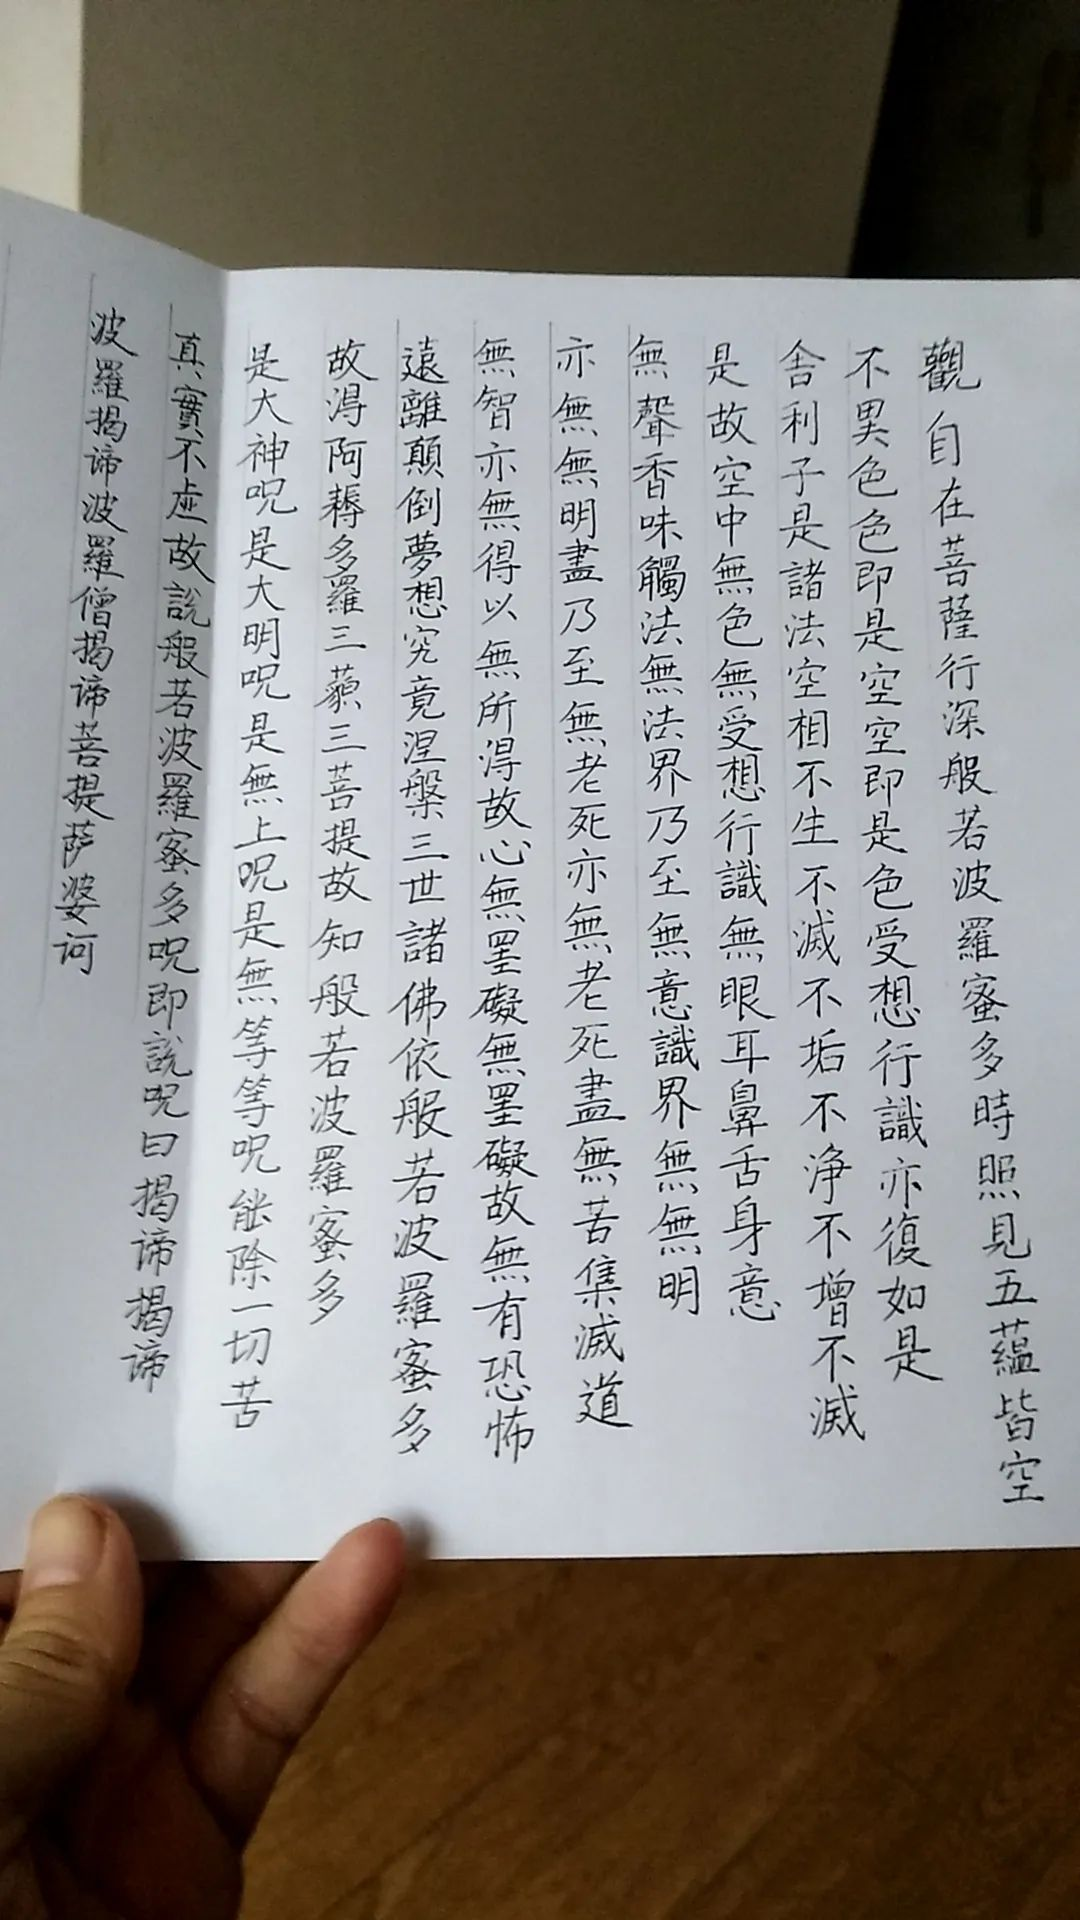 觀自在菩薩行深般若波羅蜜多時照見五蘊皆空
不異色色即是空空即是色受想行識亦復如是
舍利子是諸法空相不生不滅不垢不淨不增不滅
是故空中無色無受想行識無眼耳鼻舌身意
無聲香味觸法無法界乃至無意識界無無明
亦無無明盡乃至無老死亦無老死盡無苦集滅道
無智亦無得以無所得故心無罣礙無罣礙故無有恐怖
遠離顛倒夢想究竟涅槃三世諸佛依般若波羅蜜多
故得阿耨多羅三藐三菩提故知般若波羅蜜多
是大神呪是大明呪是無上呪是無等等呪能除一切苦
真實不虛故說般若波羅蜜多呪即說呪曰揭諦揭諦
波羅揭諦波羅僧揭諦菩提萨婆诃